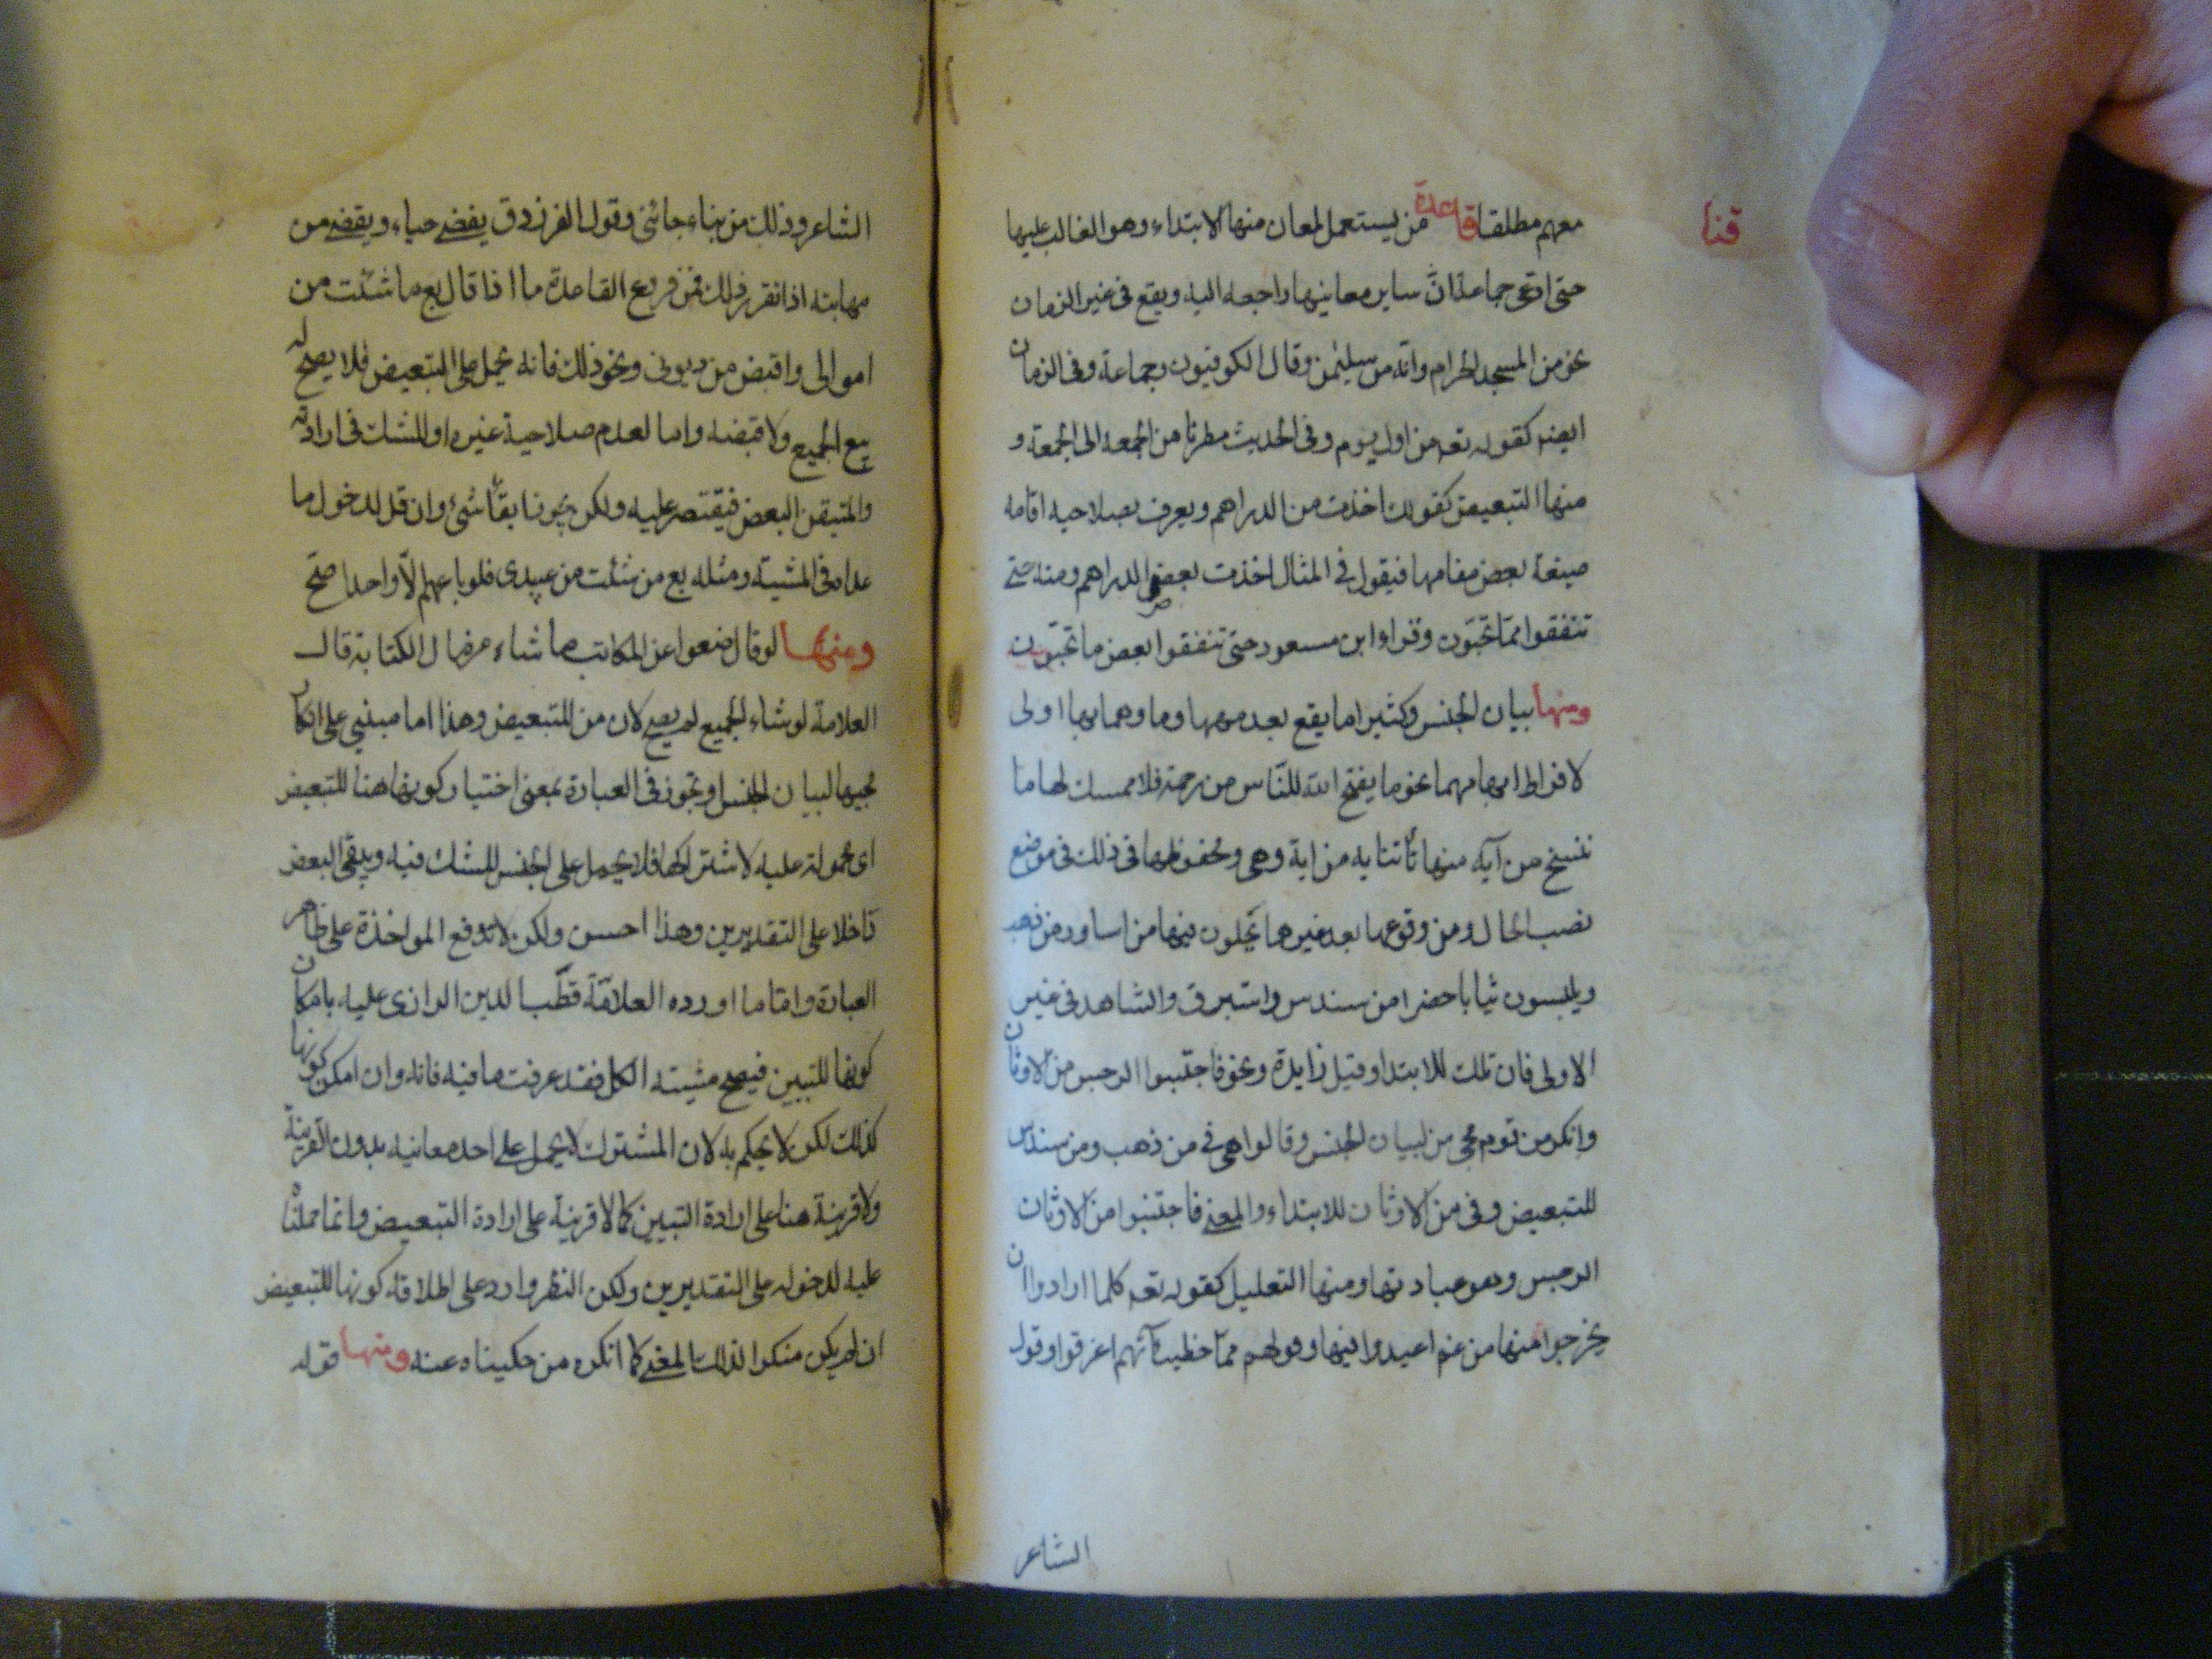 قنا
معهم مطلقا قاعدة من يستعمل لمعان منها الابتداء وهو الغالب عليها
حتى ادعى جماعة انّ ساير معانيها راجعه اليه ويقع فى غير الزمان
نحو من المسجد الحرام وانّه من سليمن وقال الكوفيون وجماعة وفى الزمان
ايضا كقوله تعه من اول يوم وفى الحديث مطرنا من الجمعه الى الجمعة و
منها التبعيض كقولك اخذت من الدراهم ويعرف بصلاحيه اقامه
صيغة بعض مقامها فيقول فى المثال اخذت بعض الدراهم ومنه حتى
تنفقوا ممّا تحبّون وقراء ابن مسعود حتى تنفقوا بعض ما تحبّون
ومنها بيان الجنس وكثيرا ما يقع بعد مهما وما وهما بها اولى
لافراط ابهامهما نحو ما يفتح الله للنّاس من رحمة فلا ممسك لها ما
ننسخ من آية مهما تأتنا به من اية وهى ومخفوظها فى ذلك فى موضع
نصب الحال ومن وقوعها بعد غيرهما يحلون فيها من اساور من ذهب
ويلبسون ثيابا خضرا من سندس واستبرق والشاهد فى غير
الاولى فان تلك للابتدا وقيل زايدة ونحو فاجتنبوا الرجس من الاوثان
وانكر من قوم مجى من لبيان الجنس وقالوا هى فى من ذهب ومن سندس
للتبعيض وفى من الاوثان للابتداء والمعنى فاجتنبوا من الاوثان
الرجس وهو عبادتها ومنها التعليل كقوله تعه كلما ارادوا ان
يخرجوا منها من غم اعيدوا فيها وقولهم ممّا خطيئاتهم اغرقوا وقول
الشاعر
الشاعر وذلك من نباء جائنى وقول الفرزدق يغضى حياء ويغضى من
مهابته اذا تقرر ذلك فمن فروع القاعدة ما اذا قال بع ما شئت من
اموالى واقبض من ديونى ونحو ذلك فانه يحمل على التبعيض فلا يصح له
بيع الجميع ولا قبضه واما لعدم صلاحية غيره او للشك فى ارادته
والمتيقن البعض فيقتصر عليه ولكن يجوز ابقا شئ وان قل لدخول ما
عداه فى المشية ومثله بع من شئت من عبيدى فلو باعهم الّا واحدا صحّ
ومنها لو قال ضعوا عن المكاتب ما شاء من مال الكتابة قال
العلامة لو شاء الجميع لم يصح لان من للتبعيض وهذا اما مبنى على انكار
مجيها لبيان الجنس او تجوز فى العبارة بمعنى اختيار كونها هنا للتبعيض
اى محمولة عليه لاشتراكها فلا يحمل على الجنس للشك فيه ويبقى البعض
داخلا على التقديرين وهذا احسن ولكن لا تدفع المواخذة على ظاهر
العبارة وامّا ما اورده العلامّة قطب الدين الرازى عليه بامكان
كونها للتبيين فيصح مشيته الكل فقد عرفت ما فيه فانه وان امكن كونها
كذلك لكن لا يحكم به لان المشترك لا يحمل على احد معانيه بدون القرينة
ولا قرينة هنا على ارادة التبيين كما لا قرينة على ارادة التبعيض وانما حملناه
عليه لدخوله على التقديرين ولكن النظر وارد على اطلاقه كونها للتبعيض
ان لم يكن منكرا لذلك المعنى كما انكره من حكيناه عنه ومنها قوله